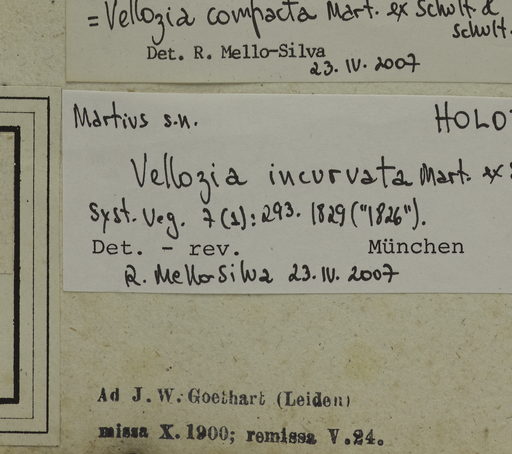 = Vellozia compacta Mart. ex Schult. &
Schult.
Det. R. Mello-Silva
23. IV. 2007
Martius s.n. HOLO
Vellozia incurvata Mart. ex
Syst. Veg. 7(1): 293. 1829 ("1826").
Det. - rev. München
R. Mello-Silva 23. IV. 2007
Ad J. W. Goethart (Leiden)
missa X. 1900; remissa V. 24.